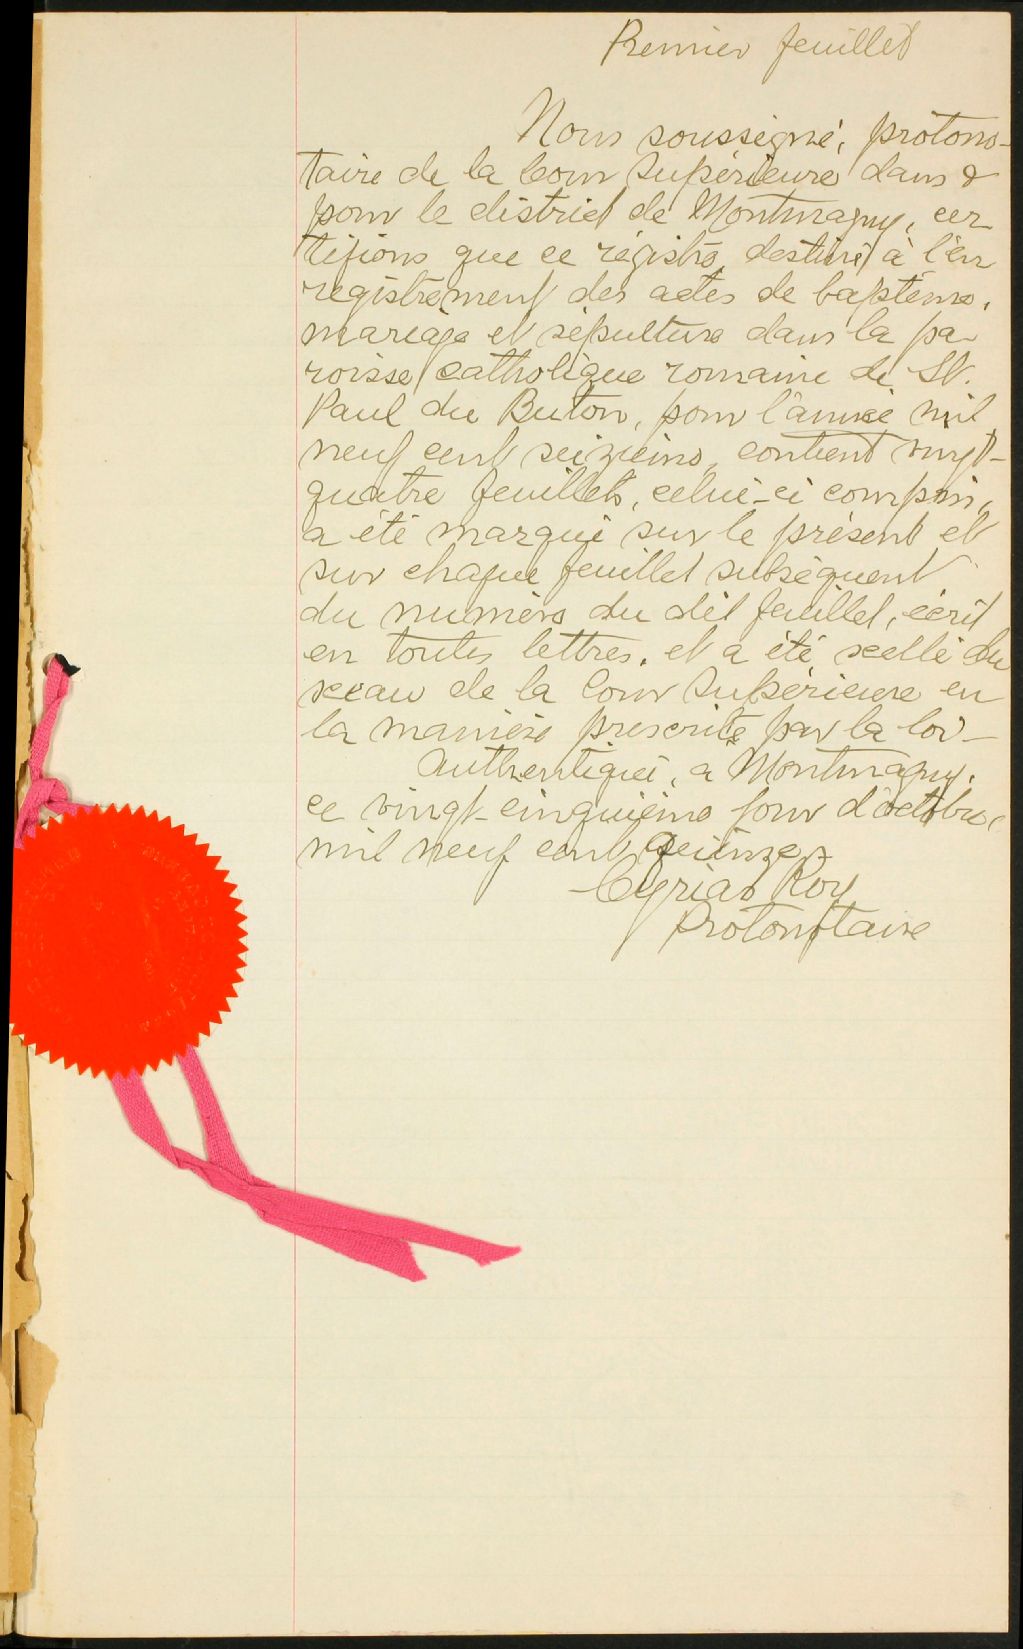 Premier feuillet
Nous soussigné, protono-
taire de la Cour Supérieure dans &
pour le district de Montmagny, cer
tifions que ce régistre destiné à l'en
registrement des actes de baptême,
mariage et sépulture dans la pa-
roisse catholique romaine de St.
Paul du Buton, pour l'année mil
neuf cent seizième, contient vingt-
quatre feuillets, celui-ci compris,
a été marqué sur le présent et
sur chaque feuillet subséquent
du numéro du dit feuillet, écrit
en toutes lettres, et a été scellé du
sceau de la Cour Supérieure en
la manière prescrite par la loi-
Authentiqué, a Montmagny,
ce vingt-cinquième jour d'octobre
mil neuf cent
Cyrias Roy
Protonotaire